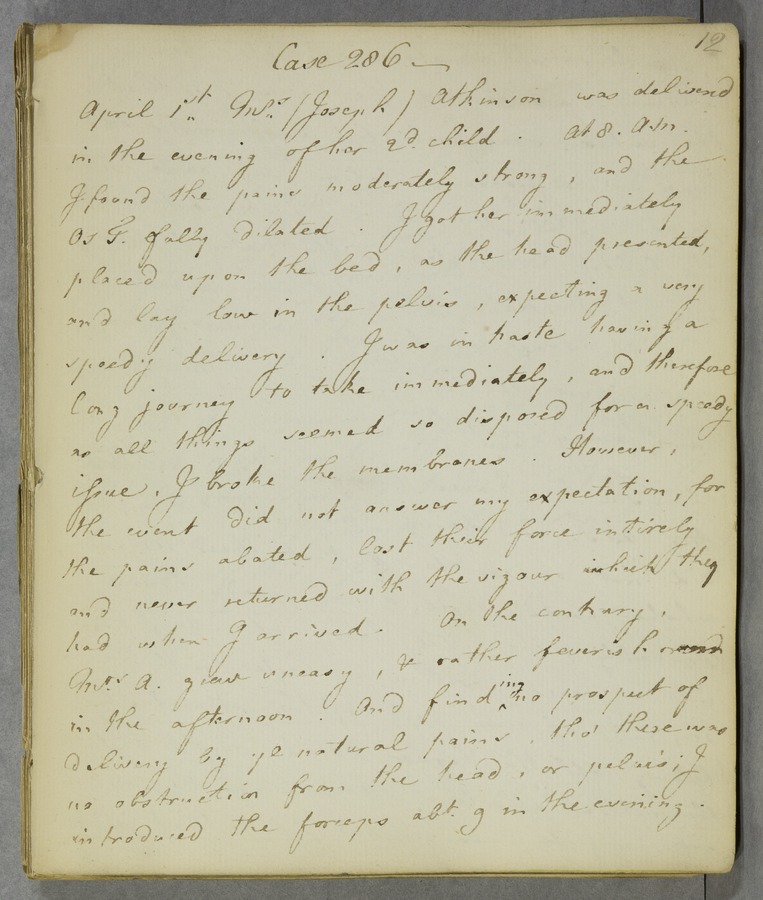 12
Case 286 —
April 1st. Mrs. (Joseph) Atkinson was deliverd
in the evening of her 2d. child. At 8. A.m.
I found the pains moderately strong, and the
Os T. fully dilated. I got her immediately
placed upon the bed, as the head presented,
and lay low in the pelvis, expecting a very
speedy delivery. I was in haste having a
long journey to take immediately, and therefore
as all things seemed so disposed for a speedy
issue, I broke the membranes. However,
the event did not answer my expectation, for
the pains abated, lost their force intirely
and never returned with the vigour which they
had when I arrived. On the contrary,
Mrs. A. grew uneasy, & rather feverish
in the afternoon. And finding no prospect of
delivery by ye natural pains, tho' there was
no obstruction from the head, or pelvis; I
introduced the forceps abt. 9 in the evening.